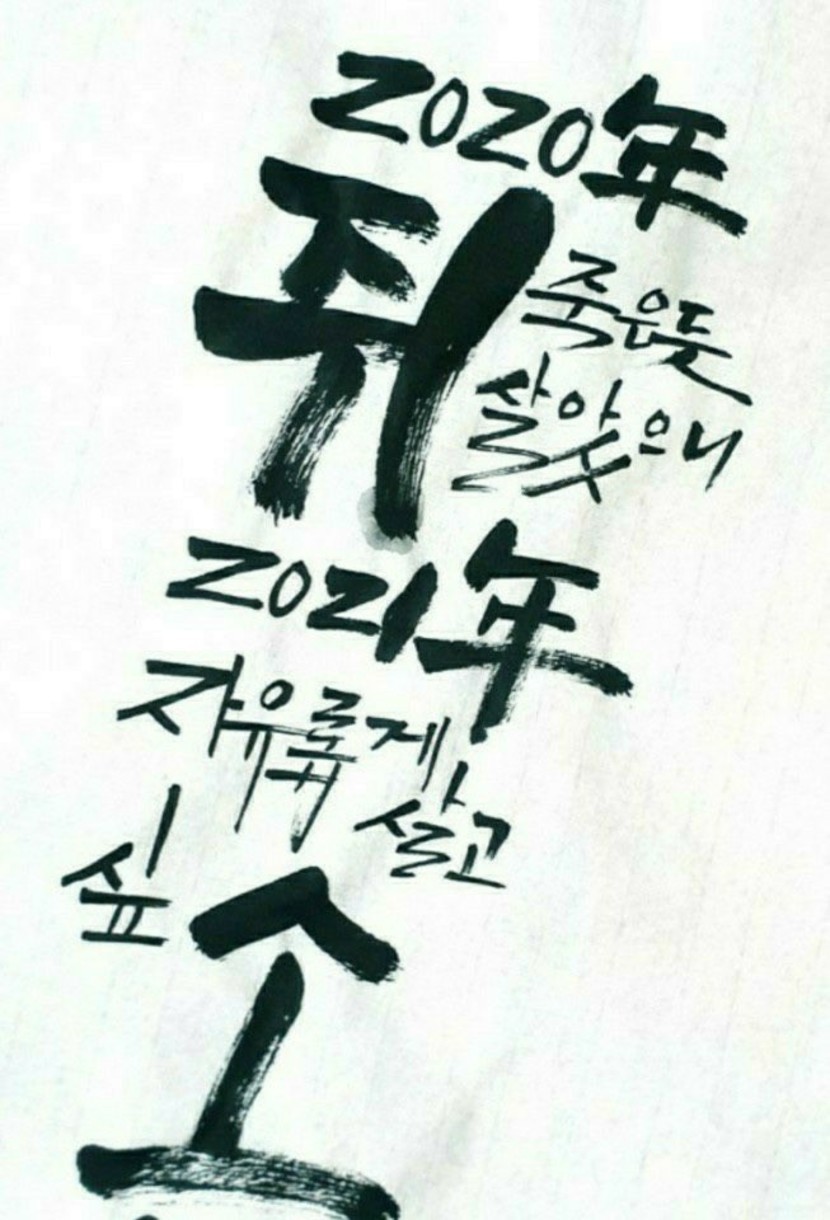 2020年
쥐 죽은듯
살았으니
2021年
자유롭게
살고
싶소